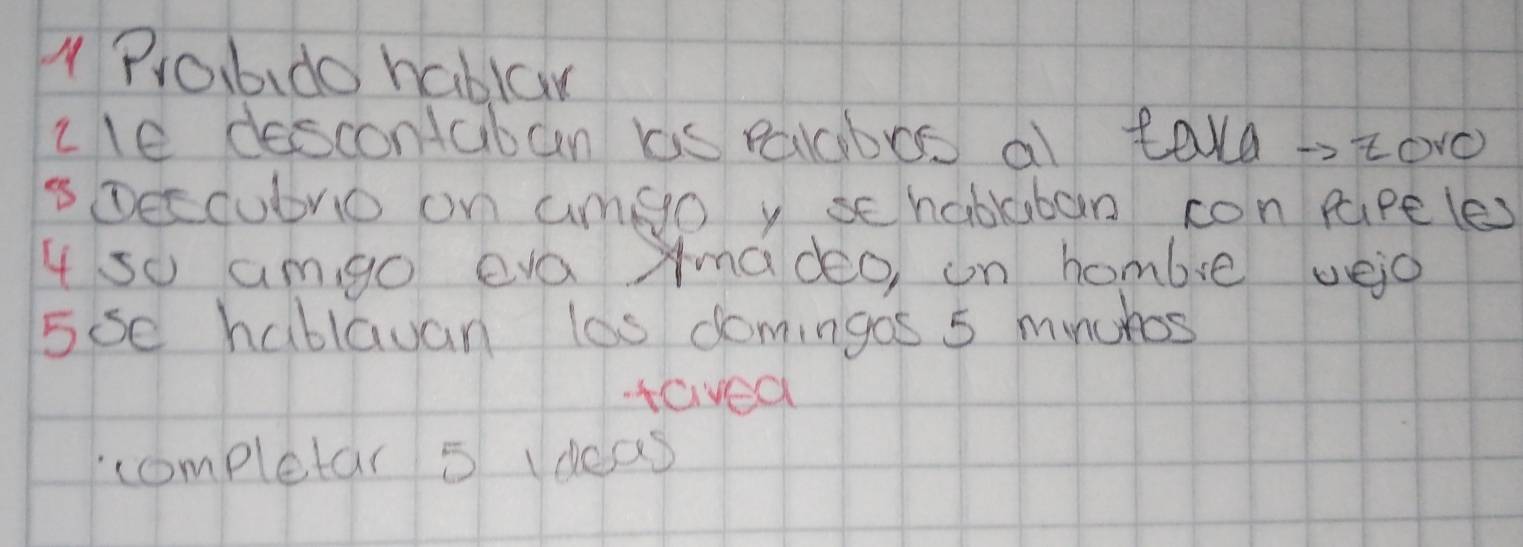 1 Proibido hablar
2 le descontaban las palabras al tata → zoro
3 Descubrio on amigo y se hablaban con papeles
4 so amigo era Amadeo, un hombre vejo
5 se hablavan los domingos 5 minutos
tarea
completar 5 ideas